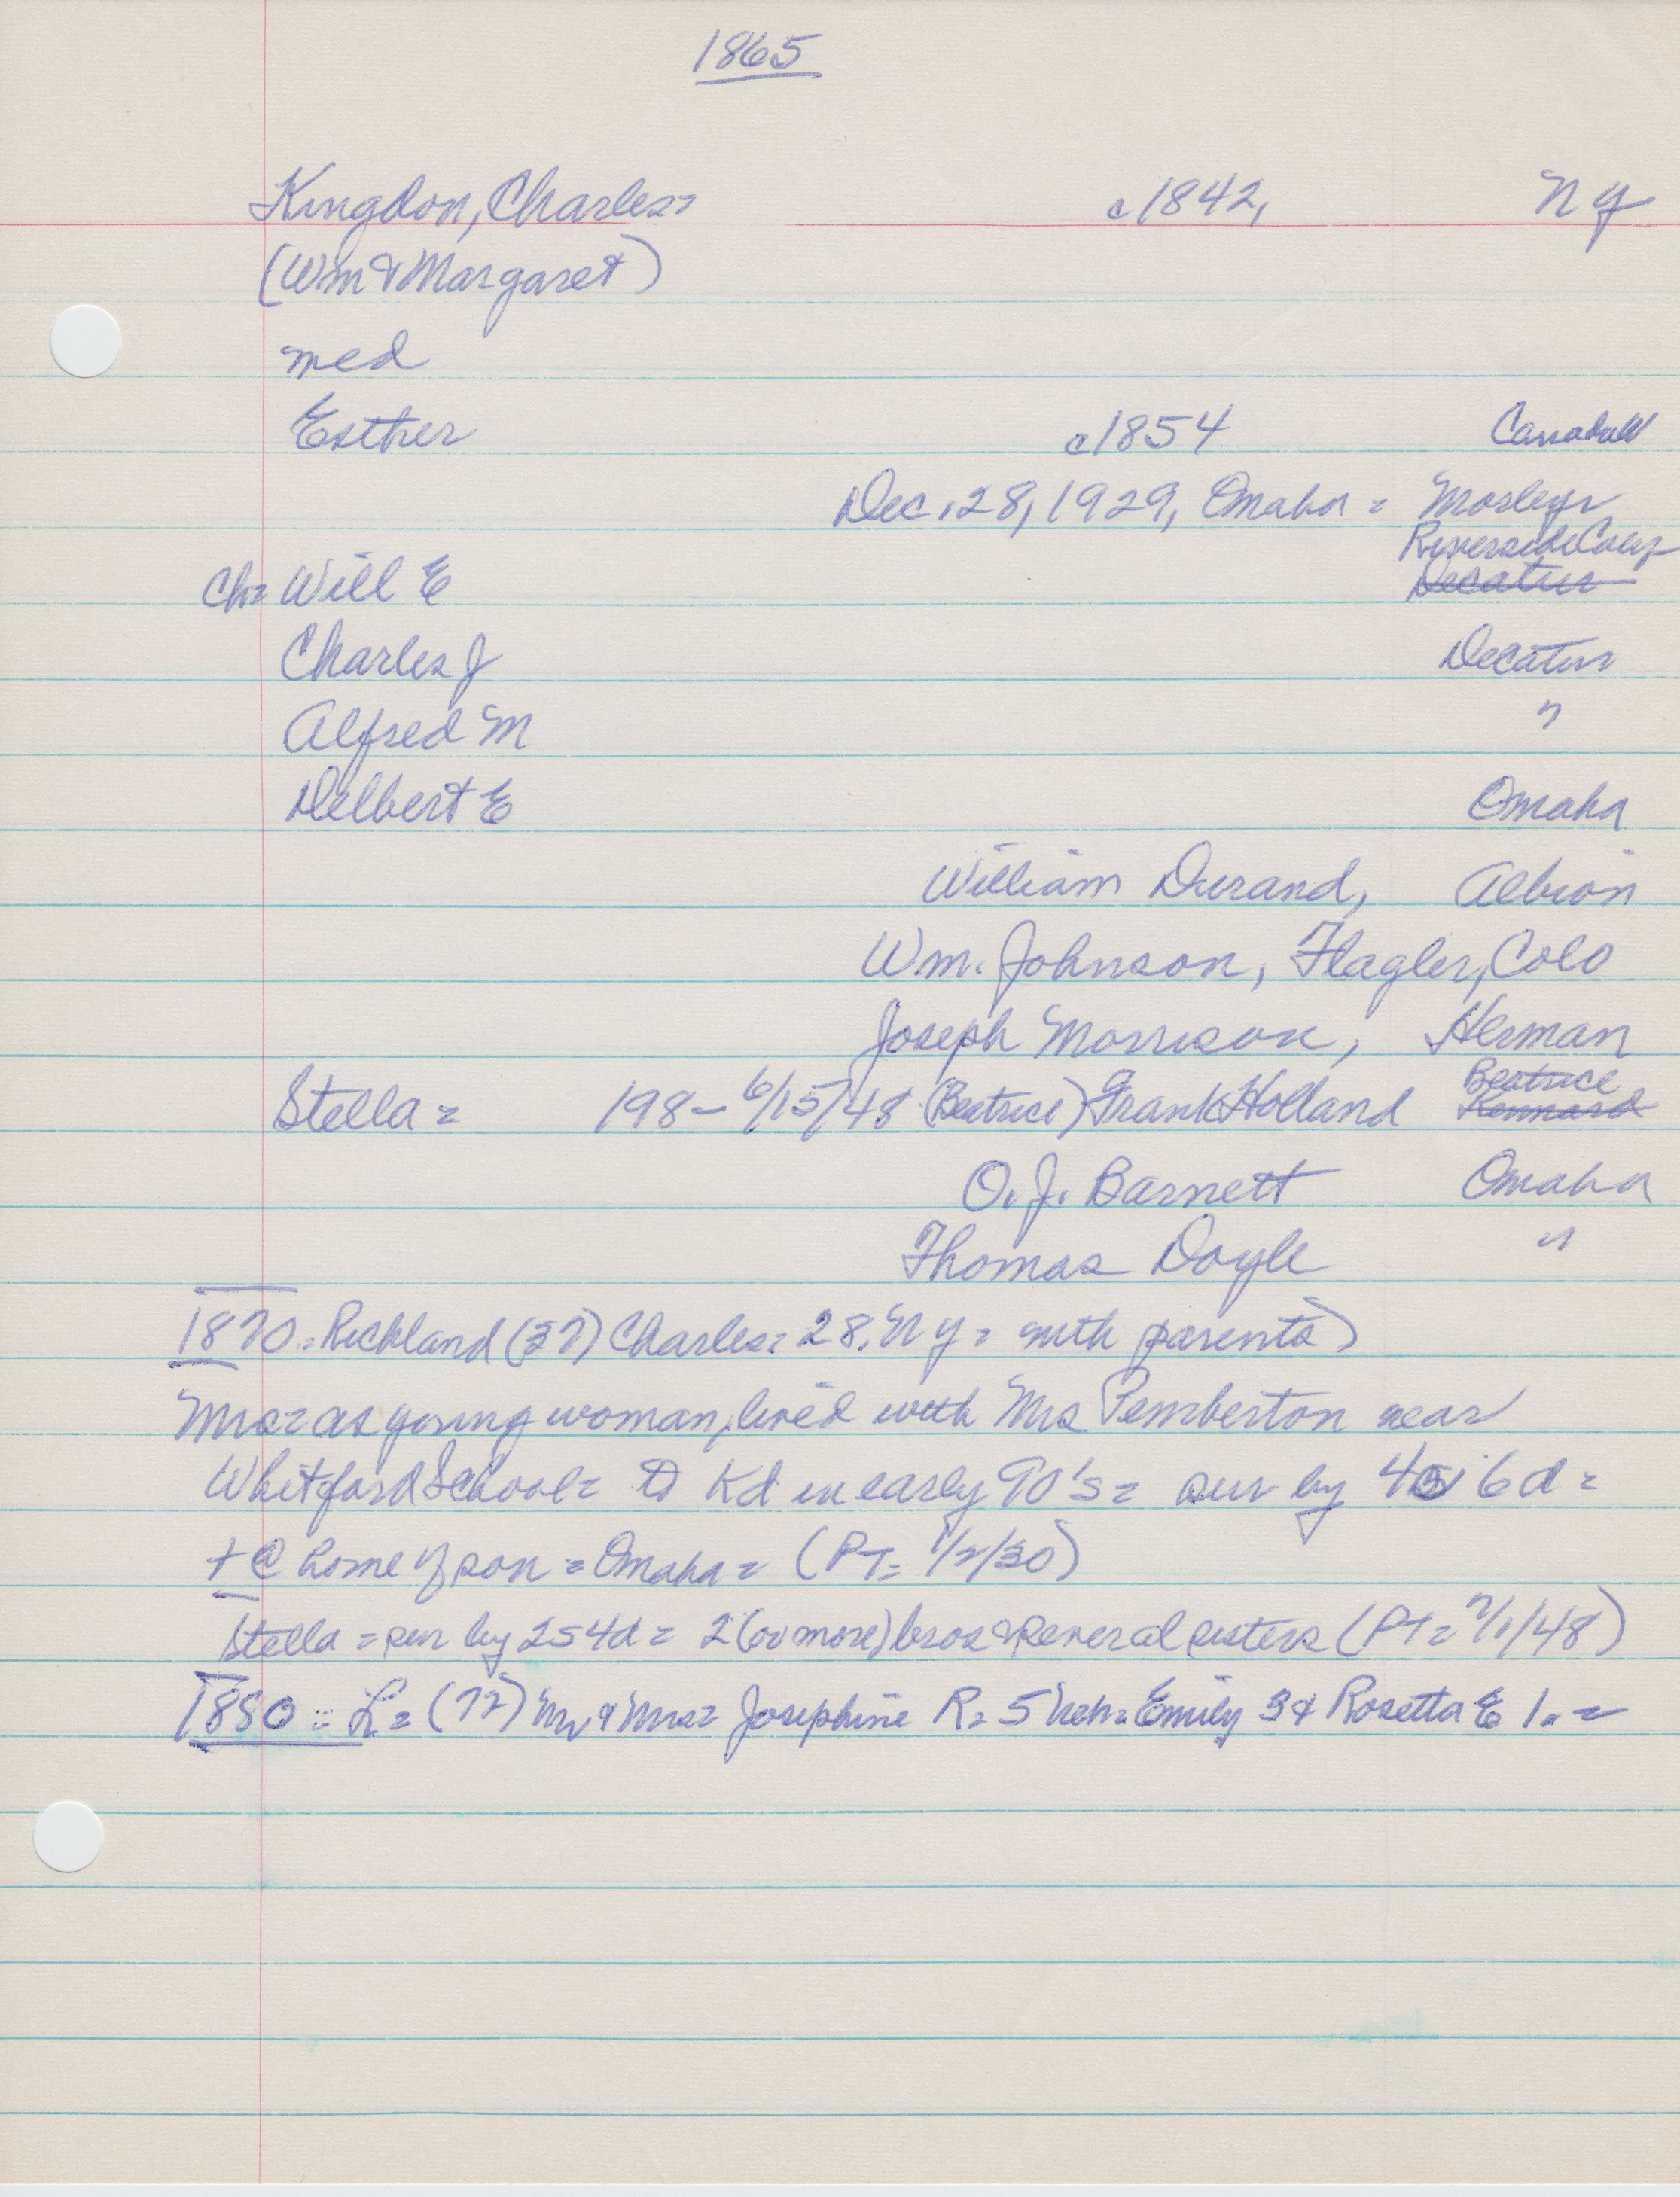 1865
Kingdon, Charles= c1842, NY
(Wm & Margaret)
med
Esther c1854 CanadaW
Dec. 28, 1929, Omaha = Mosleys
Riverside Cem
Ch= Will E Decatur
Charles J Decatur
Alfred M "
Delbert E Omaha
William Durand, Albion
Wm. Johnson, Flagler, Colo
Joseph Morrison, Herman
Beatrice
Stella = 198– 6/15/48 (Beatrice) Frank Holland Kennard
O. J. Barnett Omaha
Thomas Doyle "
1870 = Richland (37) Charles = 28. NY = with parents)
Mrs = as young woman, lived with Mrs Pemberton near
Whitford School = to Kd in early 90's = sur by 4s 6d =
+ @ home of son = Omaha = (PT= 1/2/30)
Stella = sur by 2s 4d = 2 (or more) bros & several sisters (PT= 7/1/48)
1880 = L = (72) Mr & Mrs = Josephine R = 5 Neb = Emily 3 & Rosetta E 1. =